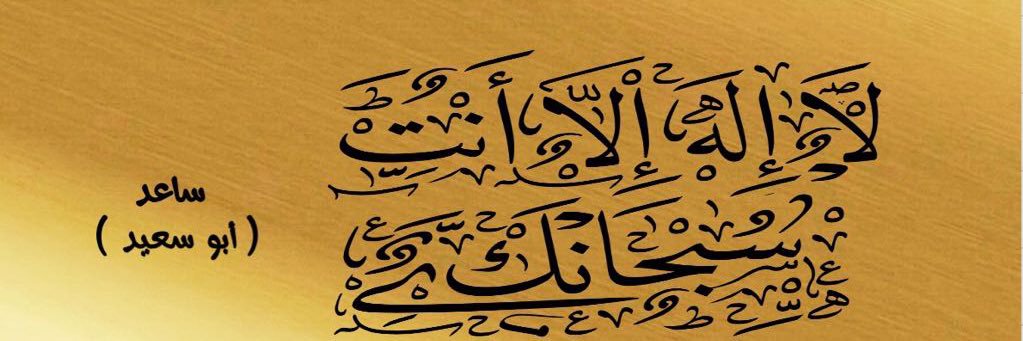 لا إله إلا أنت
سبحانك
ساعد
( أبو سعيد )